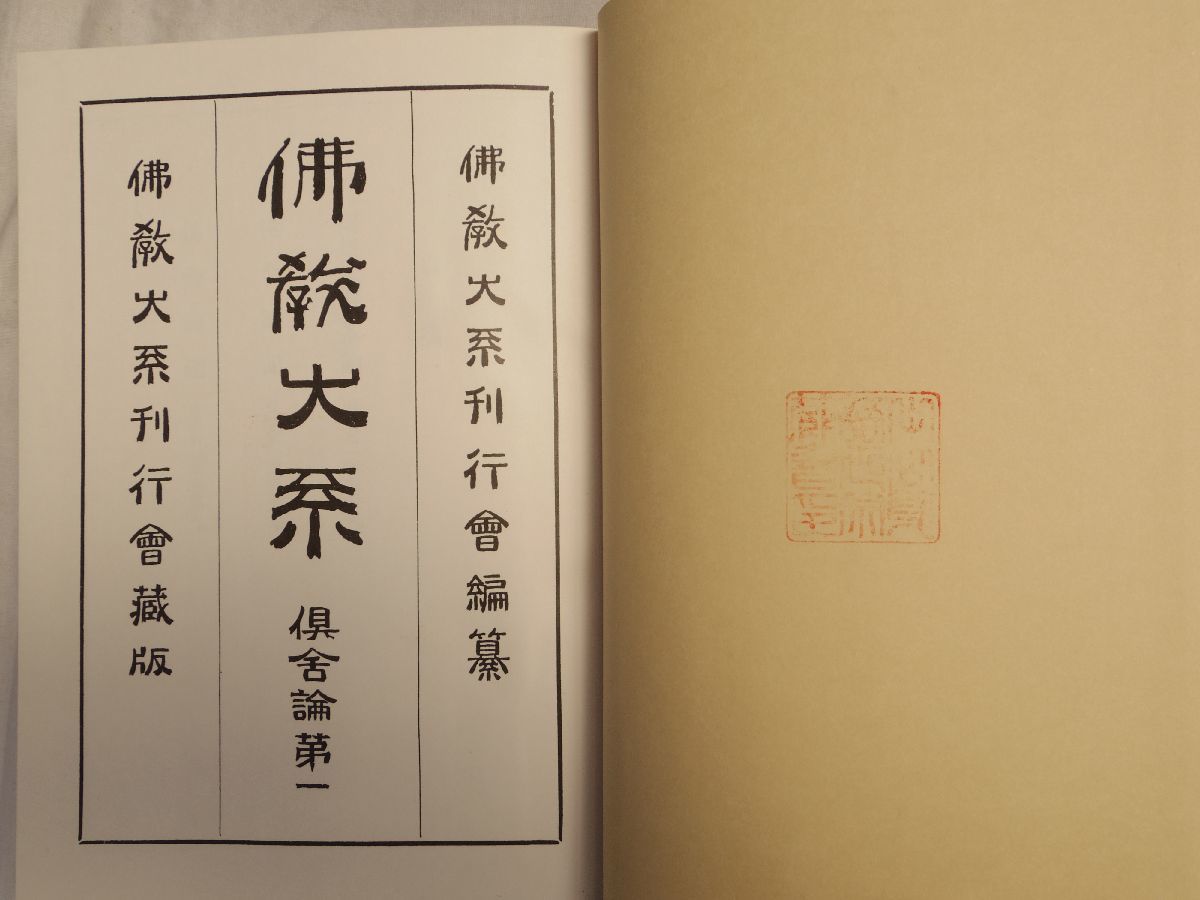 佛教大系刊行會編纂
佛教大系 俱舍論第一
佛教大系刊行會藏版